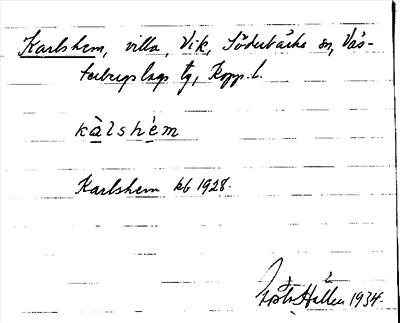 Karlshem, villa, Vik, Söderbärke sn, Väs-
terbergslags tg, Kopp. l.
kàlshèm
Karlshem kb 1928.
Gösta Hallén 1934.